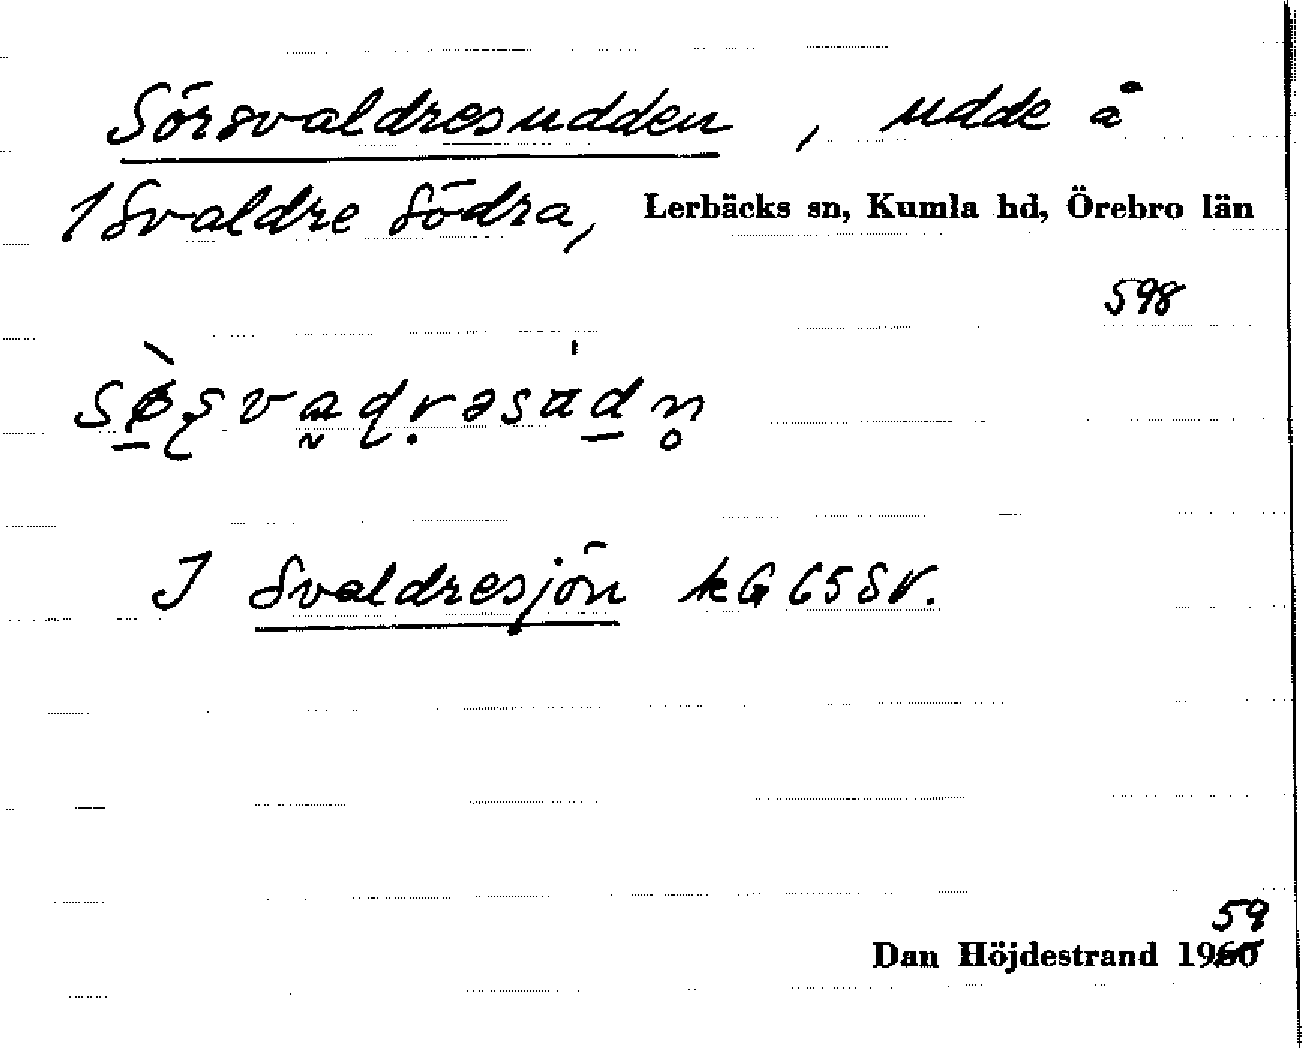 Sörsvaldresudden, udde å
1 Svaldre Södra, Lerbäcks sn, Kumla hd, Örebro län
598
I Svaldresjön kG 65 SV.
59
Dan Höjdestrand 1960